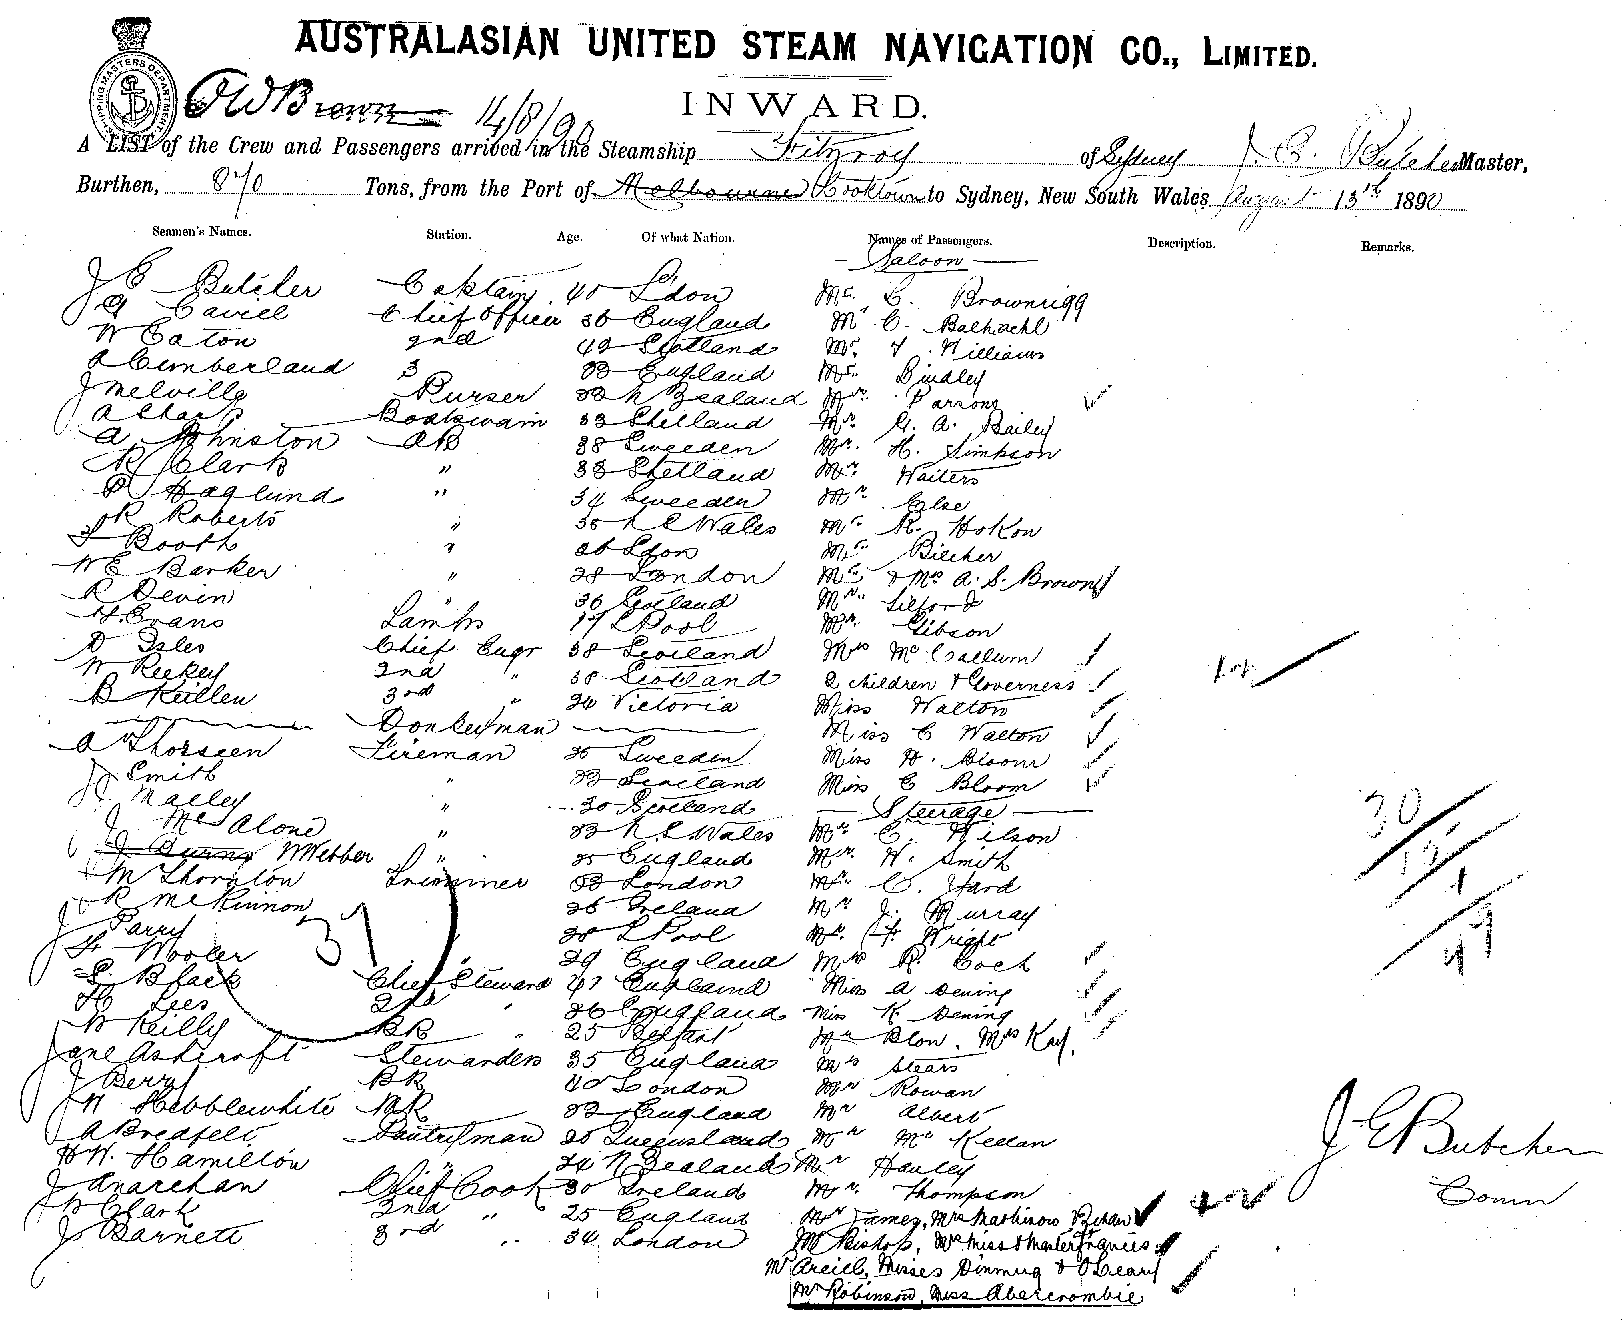 AUSTRALASIAN UNITED STEAM NAVIGATION CO., LIMITED.
SHIPPING MASTERS DEPARTMENT
W Brown 14/8/90
INWARD.
A LIST of the Crew and Passengers arrived in the Steamship Fitzroy of Sydney J. E. Butcher Master,
Burthen, 870 Tons, from the Port of Melbourne Cooktown to Sydney, New South Wales August 13th 1890
Seamen's Names. Station. Age. Of what Nation. Names of Passengers. Description. Remarks.
Saloon
J E Butcher Captain 40 Ldon Mr. C. Brownrigg
G Cavill Chief Officer 36 England Mr C.
W Eaton 2nd 42 Scotland Mr. Williams
A Cumberland 3 33 England Mr. Bindley
J Melville Purser 33 N Zealand Parsons
A Boatswain 33 Shetland Mr. G. A. Bailey
A Johnston AB 38 Sweeden Mr. H. Simpson
R Clark " 33 Shetland Mr. Waiters
P Haglund " 34 Sweeden Mr. Else
R Roberts " 35 N S Wales Mr R. Hokon
Booth " 26 Ldon Mr Bilcher
W E Barker " 28 London Mr & Mrs A. S. Brown
R Devin " 36 Scotland Mr.
H. Evans Lamps 19 L Pool Mr. Gibson
D Isles Chief Engr 38 Scotland Mrs McCallum
W Reekey 2nd " 38 Scotland 2 children & Governess
B Keillen 3rd " 26 Victoria Miss Walton
Donkeyman Miss C Walton
A Thorseen Fireman 35 Sweeden Miss H. Bloom
J Smith " 33 Scotland Miss E Bloom
Mailey " 30 Scotland Steerage
J McAlone " 33 N S Wales Mr C. Wilson
J Burns W Webber " 25 England Mr. W. Smith
M Thornton Trimmer 33 London Mr. C. Yard
R McKinnon 26 Ireland Mr J. Murray
J Parry 28 L Pool Mr. H. Wright
H Wooler 29 England Mrs R. Cock
S. Black Chief Steward 47 England Miss A Dening
H Lees 2nd " 26 England Miss K Dening
W Reilly BR " 25 Belfast Mr Blow, Mrs Kay,
Jane Ashcroft Stewardess 35 England Mrs Stears
J Berry BR 40 London Mr Rowan
W Hebblewhite BR 33 England Mr Albert
A Bredfelt Pantryman 25 Queensland Mr McKellan
H W. Hamilton " 24 N Zealand Mr Hanley
J Anarchan Chief Cook 30 Ireland Mr. Thompson
W Clark 2nd " 25 England Mr James, Mrs
J Barnett 3rd " 34 London Mr Bishop, Mrs Miss & Master Francis
Mr Areill, Misses Dinmug & O'Leary
Mr Robinson, Miss Abercrombie
37
30
19
49
J E Butcher
Comr